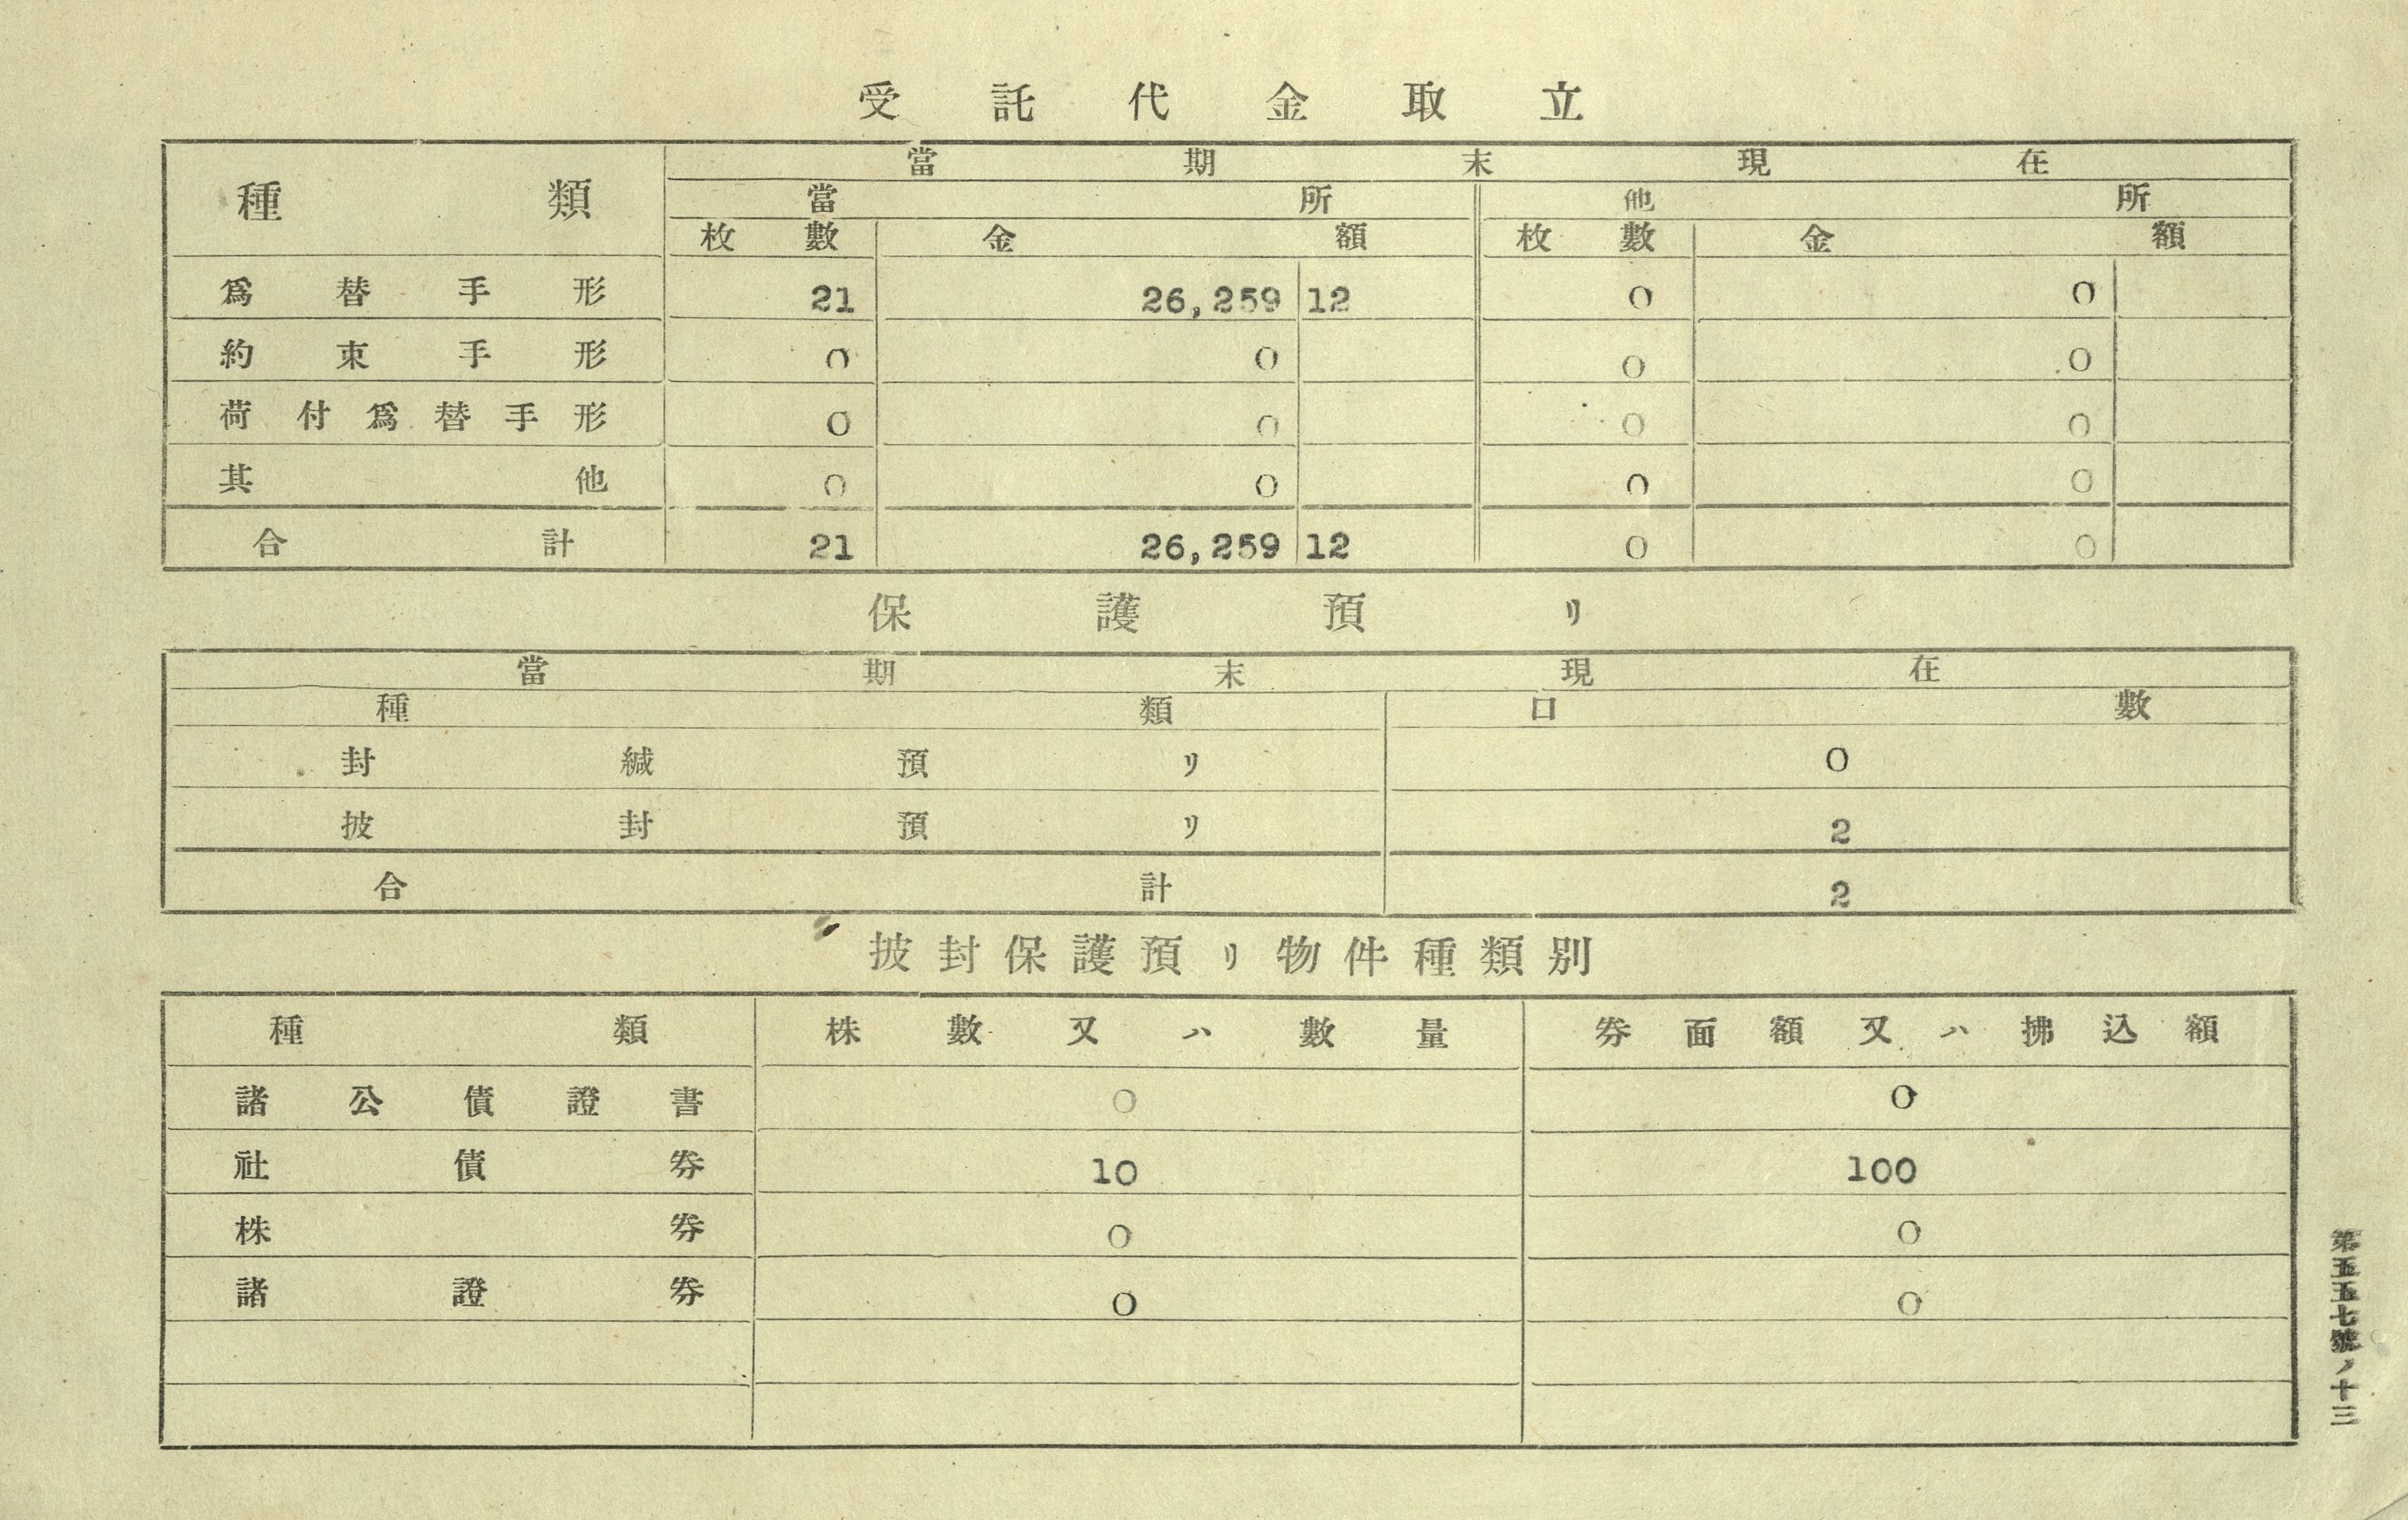 受託代金取立
種類 當期末現在
當所 他所
枚數 金額 枚數 金額
爲替手形 21 26,259 12 0 0
約束手形 0 0 0 0
荷付爲替手形 0 0 0 0
其他 0 0 0 0
合計 21 26,259 12 0 0
保護預リ
當期末現在
種類 口數
封緘預リ 0
披封預リ 2
合計 2
披封保護預リ物件種類別
種類 株數又ハ數量 券面額又ハ拂込額
諸公債證書 0 0
社債券 10 100
株券 0 0
諸證券 0 0
第五五七號ノ十三